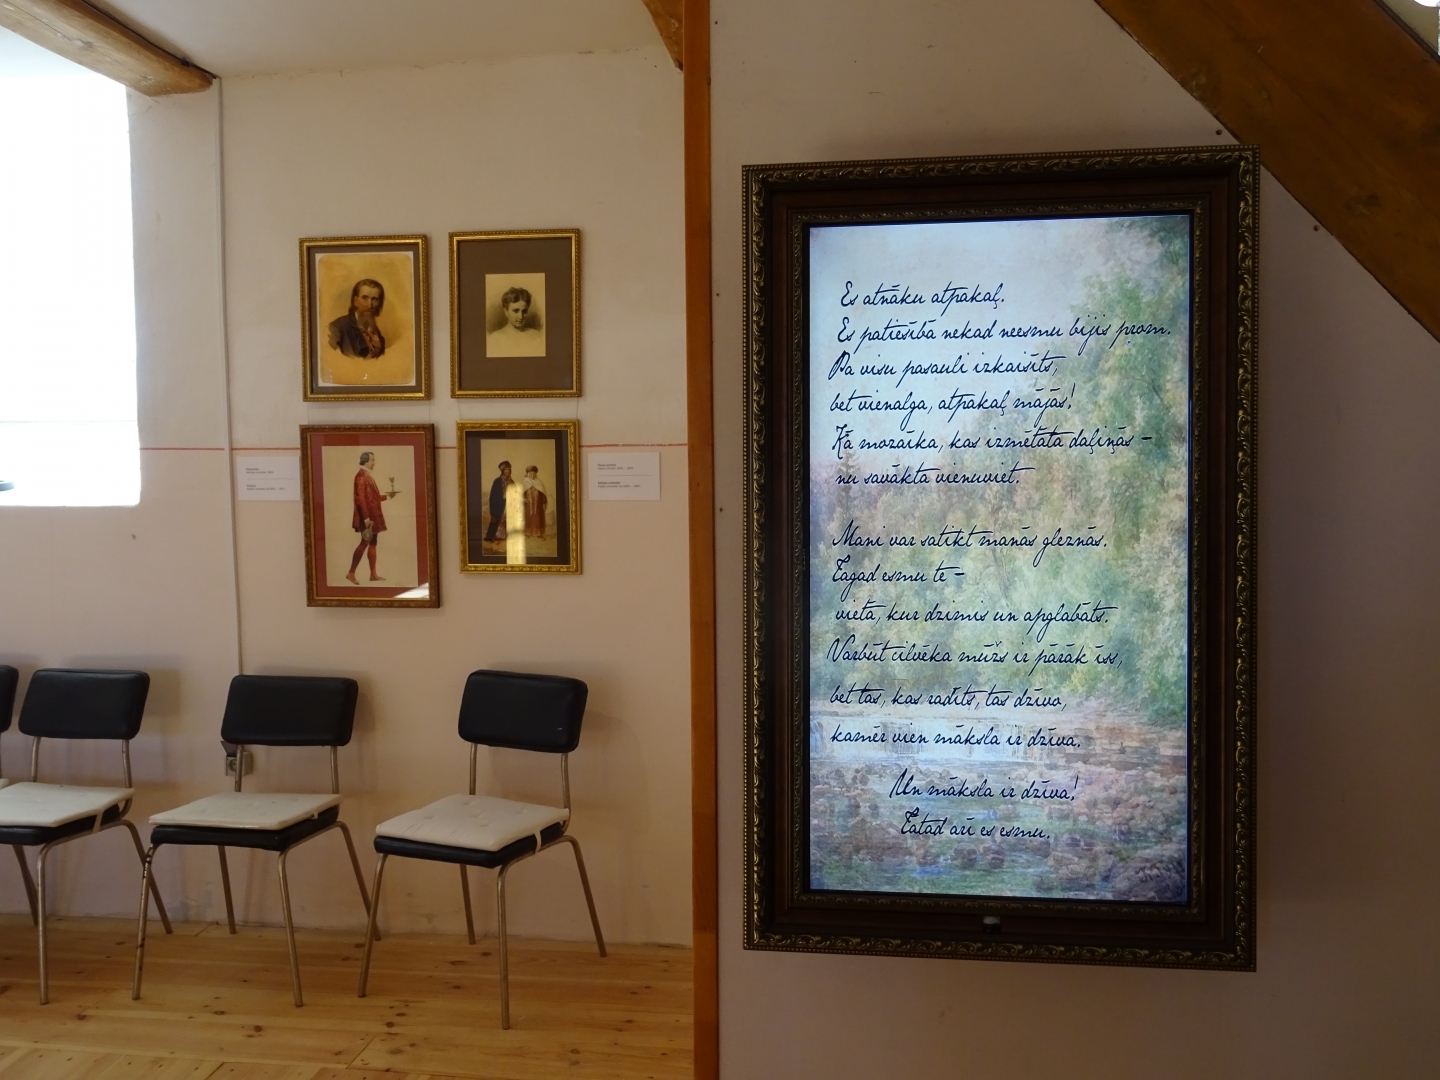 Es atnāku atpakaļ.
Es patiesībā nekad neesmu bijis prom.
Pa visu pasauli izkaisīts,
bet vienalga, atpakaļ mājās!
Kā mozaīka, kas izmētāta daļiņās –
nu savākta vienuviet.
Mani var satikt manās gleznās.
Tagad esmu te –
vietā, kur dzimis un apglabāts.
Varbūt cilvēka mūžs ir pārāk īss,
bet tas, kas radīts, tas dzīvo,
kamēr vien māksla ir dzīva.
Un māksla ir dzīva!
Tātad arī es esmu.